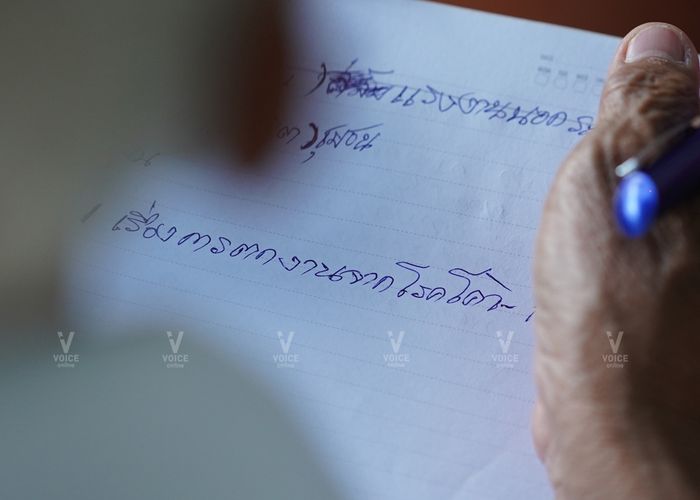 แรงงานนอกระ
ชุมชน
เรื่อง การตกงานจากโรคโค
VOICE online VOICE online VOICE online VOICE online VOICE online VOICE online